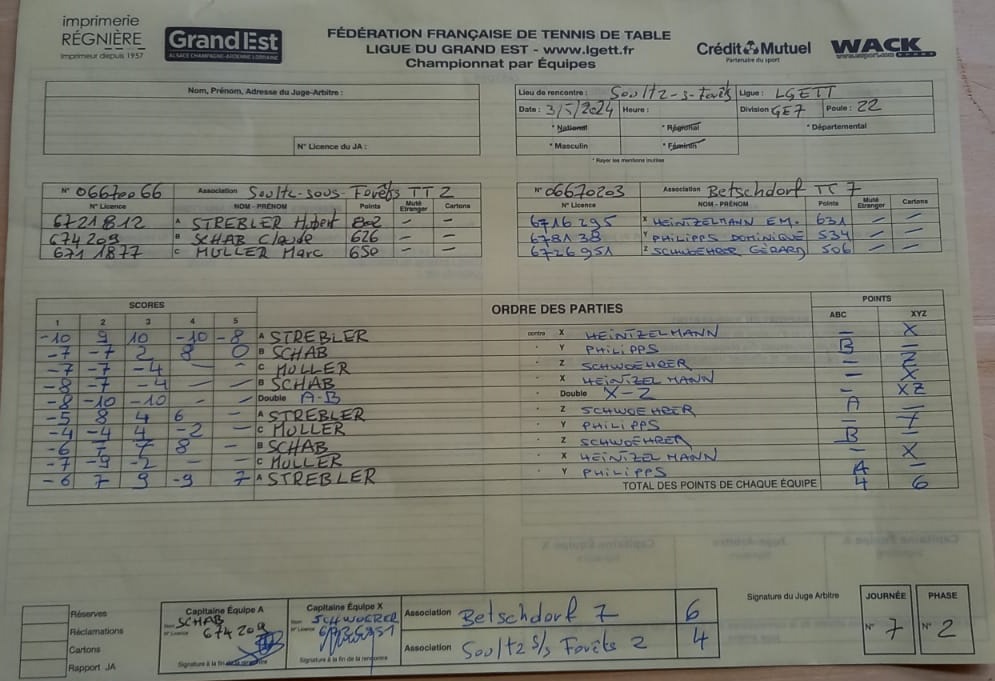 imprimerie
RÉGNIÈRE
Imprimeur depuis 1957
Grand Est
ALSACE CHAMPAGNE-ARDENNE LORRAINE
FÉDÉRATION FRANÇAISE DE TENNIS DE TABLE
LIGUE DU GRAND EST - www.lgett.fr
Championnat par Équipes
Crédit Mutuel
Partenaire du sport
WACK
Nom, Prénom, Adresse du Juge-Arbitre :
N° Licence du JA :
Lieu de rencontre : Soultz-s-Forêts Ligue : LGETT
Date : 3/5/2024 Heure : Division GE7 Poule : 22
* National * Régional * Départemental
* Masculin * Féminin
* Rayer les mentions inutiles
N° 06670066 Association Soultz-sous-Forêts TT 2
N° Licence NOM - PRÉNOM Points Muté Etranger Cartons
6721812 A STREBLER Hubert 802 — —
674209 B SCHAB Claude 626 — —
671 1877 C MULLER Marc 650 — —
N° 06670203 Association Betschdorf TT 7
N° Licence NOM - PRÉNOM Points Muté Etranger Cartons
6716295 X HEINTZELMANN EM. 631 — —
678138 Y PHILIPPS DOMINIQUE 534 — —
6726951 Z SCHWOEHRER GÉRARD 506 — —
SCORES ORDRE DES PARTIES POINTS
1 2 3 4 5 ABC XYZ
-10 9 10 -10 -8 A STREBLER contre X HEINTZELMANN — X
-7 -7 2 8 0 B SCHAB Y PHILIPPS B —
-7 -7 -4 — — C MULLER Z SCHWOEHRER — Z
-8 -7 -4 — — B SCHAB X HEINTZELMANN — X
-8 -10 -10 — — Double A-B Double X-Z — XZ
-5 8 4 6 — A STREBLER Z SCHWOEHRER A —
-4 -4 4 -2 — C MULLER Y PHILIPPS — Y
-6 7 7 8 — B SCHAB Z SCHWOEHRER B —
-7 -9 -2 — — C MULLER X HEINTZELMANN — X
-6 7 9 -9 7 A STREBLER Y PHILIPPS A —
TOTAL DES POINTS DE CHAQUE ÉQUIPE 4 6
Réserves
Réclamations
Cartons
Rapport JA
Capitaine Équipe A
Nom SCHAB
N° Licence 674209
Signature à la fin de la rencontre
Capitaine Équipe X
Nom SCHWOERER
N° Licence
Signature à la fin de la rencontre
Association Betschdorf 7 6
Association Soultz s/s Forêts 2 4
Signature du Juge Arbitre
JOURNÉE
N° 7
PHASE
N° 2